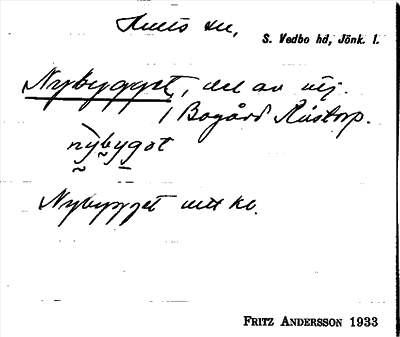 Hults sn,
S. Vedbo hd, Jönk. l.
Nybygget, del av äg.
/ Bogård Råstorp.
nybygət
Nybygget ett kv.
FRITZ ANDERSSON 1933